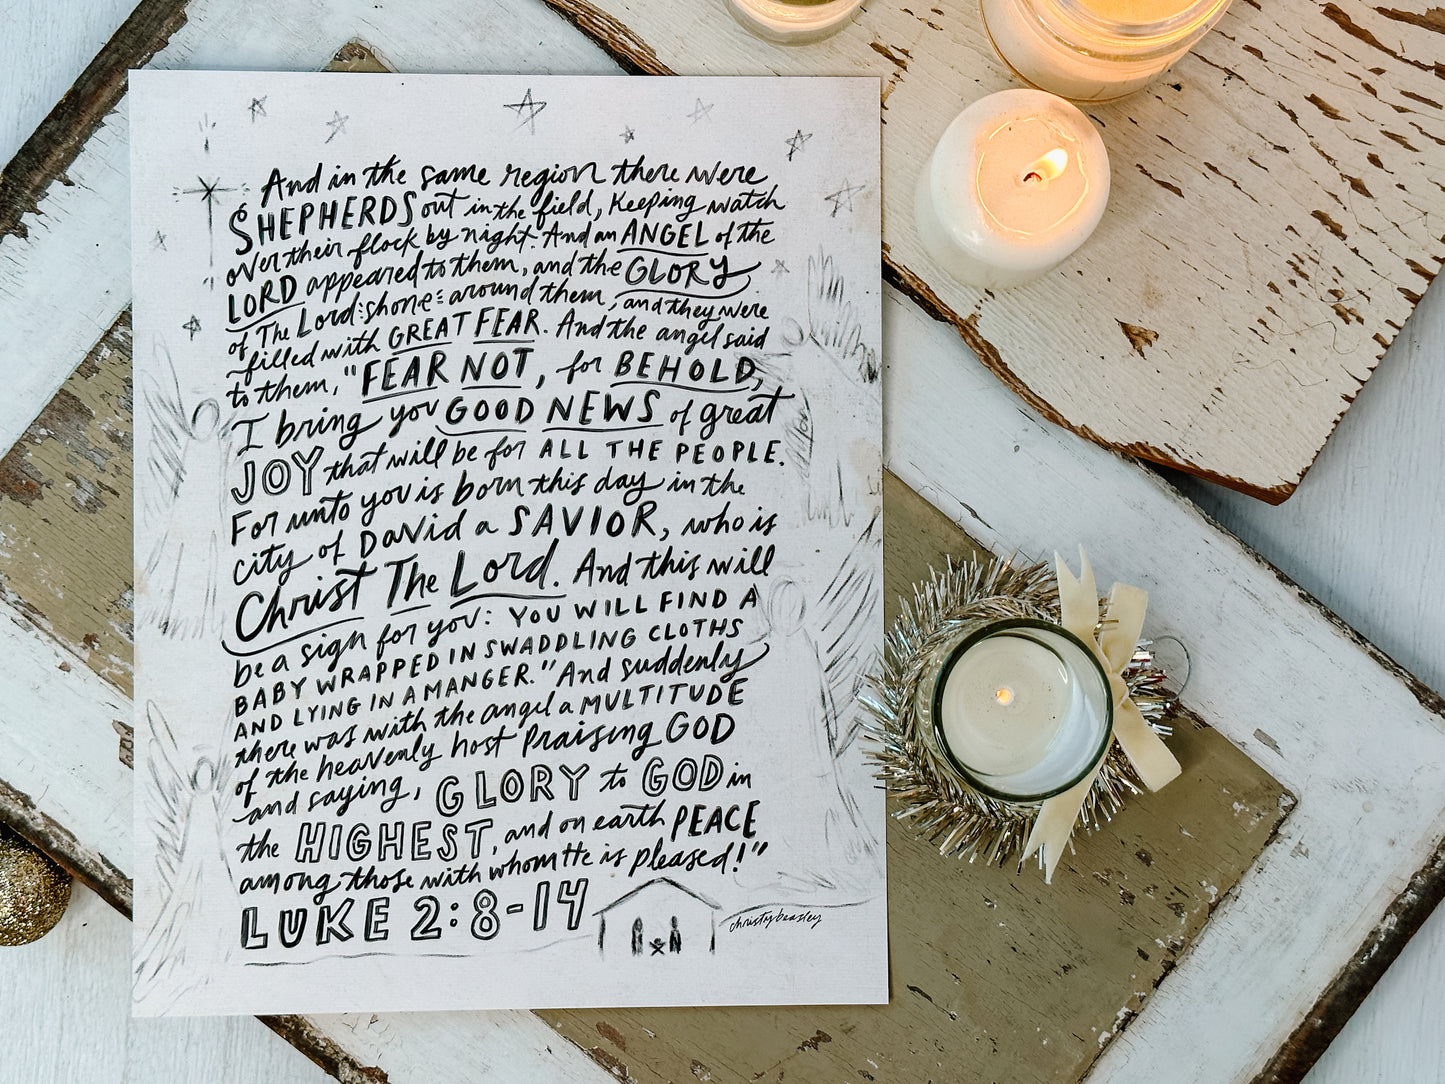 And in the same region there were
SHEPHERDS out in the field, keeping watch
over their flock by night. And an ANGEL of the
LORD appeared to them, and the GLORY
of The Lord shone around them, and they were
filled with GREAT FEAR. And the angel said
to them, "FEAR NOT, for BEHOLD,
I bring you GOOD NEWS of great
JOY that will be for ALL THE PEOPLE.
For unto you is born this day in the
city of David a SAVIOR, who is
Christ The Lord. And this will
be a sign for you: YOU WILL FIND A
BABY WRAPPED IN SWADDLING CLOTHS
AND LYING IN A MANGER." And suddenly
there was with the angel a MULTITUDE
of the heavenly host Praising GOD
and saying, GLORY to GOD in
the HIGHEST, and on earth PEACE
among those with whom He is pleased!"
LUKE 2:8-14
christybeasley